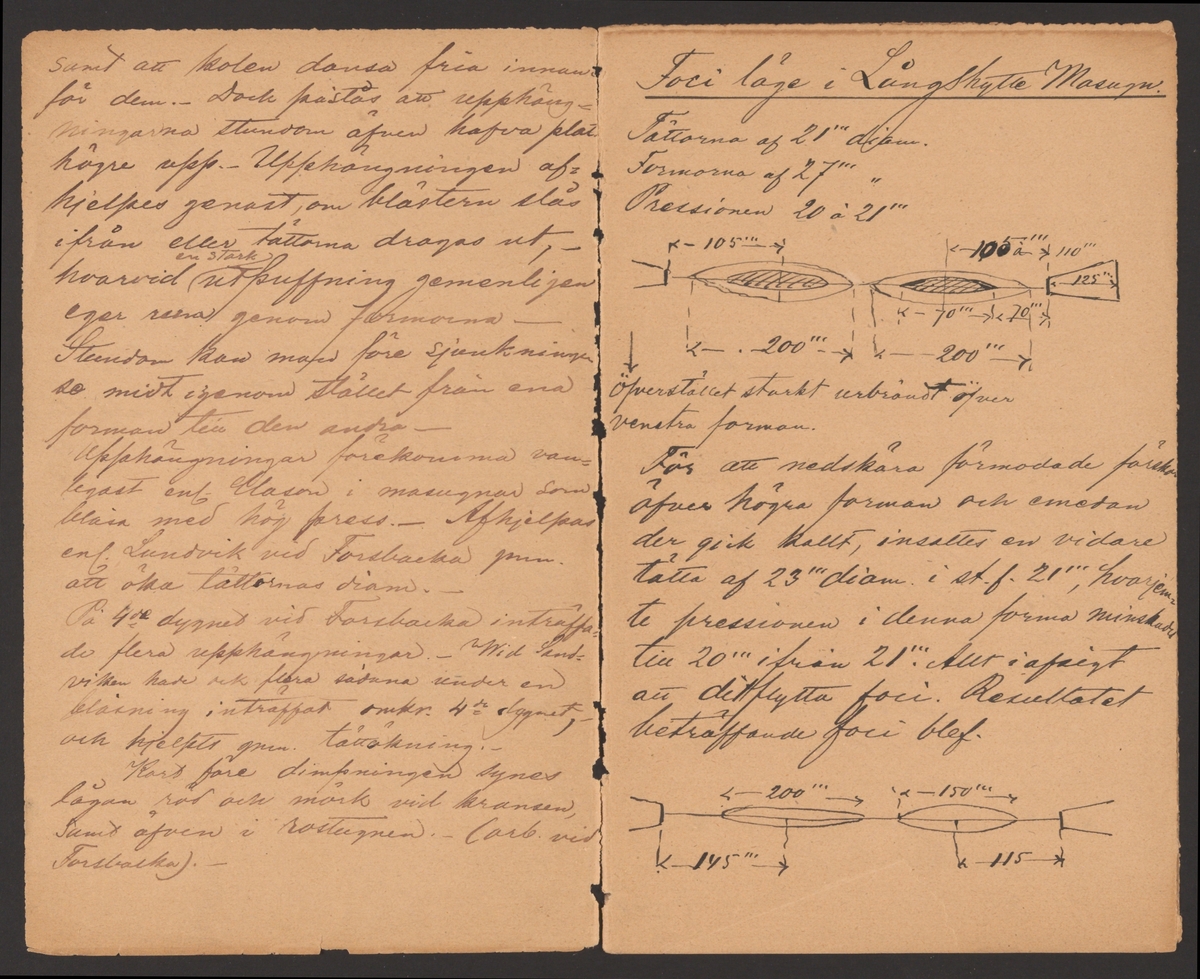 samt att kolen dansa fria innan-
för dem. – Dock påstås att upphäng-
ningarna stundom äfven hafva plats
högre upp. – Upphängningen af-
hjelpes genast, om blästern slås
ifrån eller tättorna dragas ut, –
en stark
hvarvid utpuffning gemenligen
eger rum genom formorna –
Stundom kan man före sjunkningen
se midt igenom stället från ena
forman till den andra –
Upphängningar förekomma van-
ligast enl. Clason i masugnar som
blåsa med hög press. – Afhjelpas
enl. Lundvik vid Forsbacka gnm.
att öka tättornas diam. –
På 4de dygnet vid Forsbacka inträffa-
de flera upphängningar. – Wid Sand-
viken hade ock flera sådana under en
blåsning inträffat omkr. 4de dygnet, –
och hjelpts gnm. tättökning. –
Kort före dimpningen synes
lågan röd och mörk vid kransen,
samt äfven i rostugnen. – (arb. vid
Forsbacka). –
Foci läge i Långshytte Masugn.
Tättorna af 21''' diam.
Formorna af 27''' "
Pressionen 20 à 21'''
105''' 105 à 110'''
125'''
70''' 70'''
200''' 200'''
Öfverstället starkt urbrändt öfver
venstra forman.
För att nedskära förmodade
öfver högra forman och emedan
der gick kallt, insattes en vidare
tätta af 23''' diam. i st. f. 21''', hvarjem-
te pressionen i denna forma minskades
till 20''' ifrån 21'''. Allt i afsigt
att ditflytta foci. Resultatet
beträffande foci blef.
200''' 150'''
145''' 115